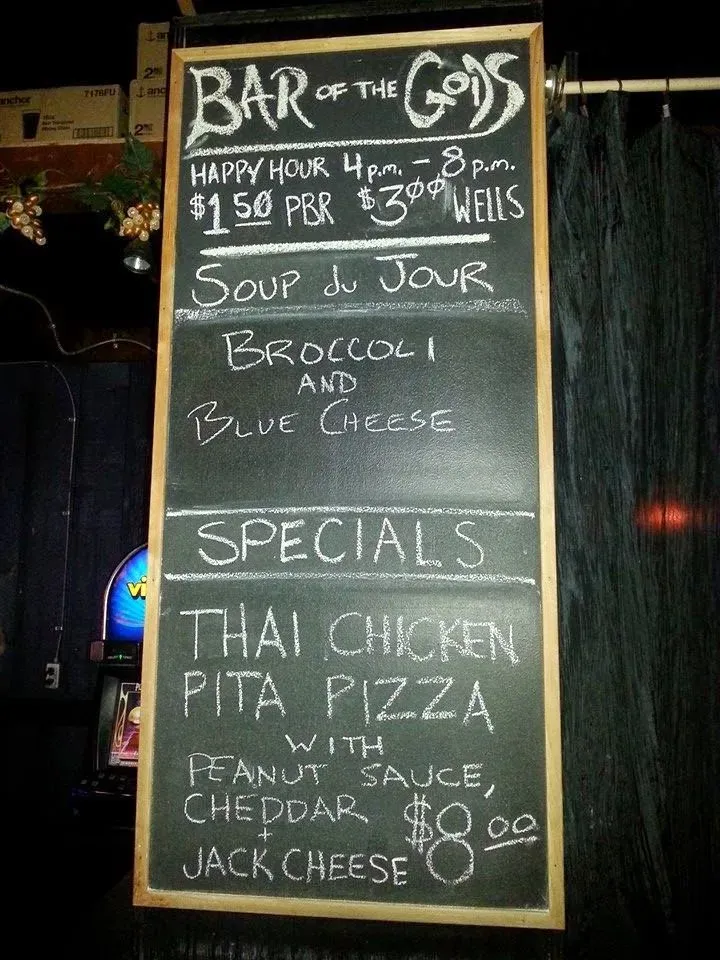 BAR OF THE GODS
HAPPY HOUR 4 p.m. - 8 p.m.
$1 50 PBR $3 00 WELLS
SOUP du JOUR
BROCCOLI
AND
BLUE CHEESE
SPECIALS
THAI CHICKEN
PITA PIZZA
WITH
PEANUT SAUCE,
CHEDDAR
+
JACK CHEESE
$8 00
anchor
7176FU
2
anc
2
vi